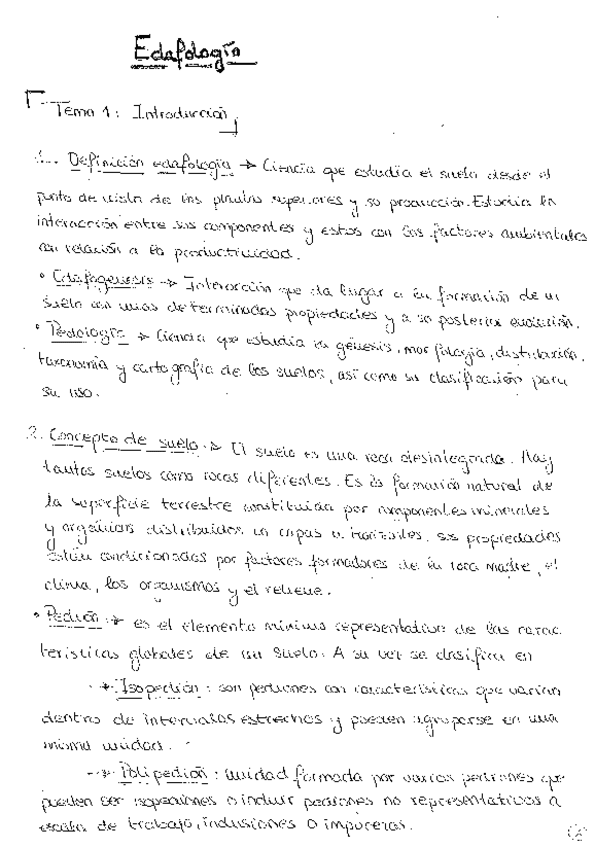 Edafología
Tema 1: Introducción
1.- Definición edafología → Ciencia que estudia el suelo desde el
punto de vista de las plantas superiores y su producción. Estudia la
interacción entre sus componentes y estos con los factores ambientales
con relación a la productividad.
• Edafogénesis → Interacción que da lugar a la formación de un
suelo con unas determinadas propiedades y a su posterior evolución.
• Pedología → Ciencia que estudia la génesis, morfología, distribución,
taxonomía y cartografía de los suelos, así como su clasificación para
su uso.
2. Concepto de suelo → El suelo es una roca desintegrada. Hay
tantos suelos como rocas diferentes. Es la formación natural de
la superficie terrestre constituida por componentes minerales
y orgánicos distribuidos en capas u horizontes, sus propiedades
están condicionadas por factores formadores de la roca madre, el
clima, los organismos y el relieve.
• Pedión → es el elemento mínimo representativo de las carac
terísticas globales de un suelo. A su vez se clasifica en
→ Isopedión: son pediones con características que varían
dentro de intervalos estrechos y pueden agruparse en una
misma unidad.
→ Polipedión: unidad formada por varios pediones que
pueden ser isopediones o incluir pediones no representativos a
escala de trabajo, inclusiones o impurezas.